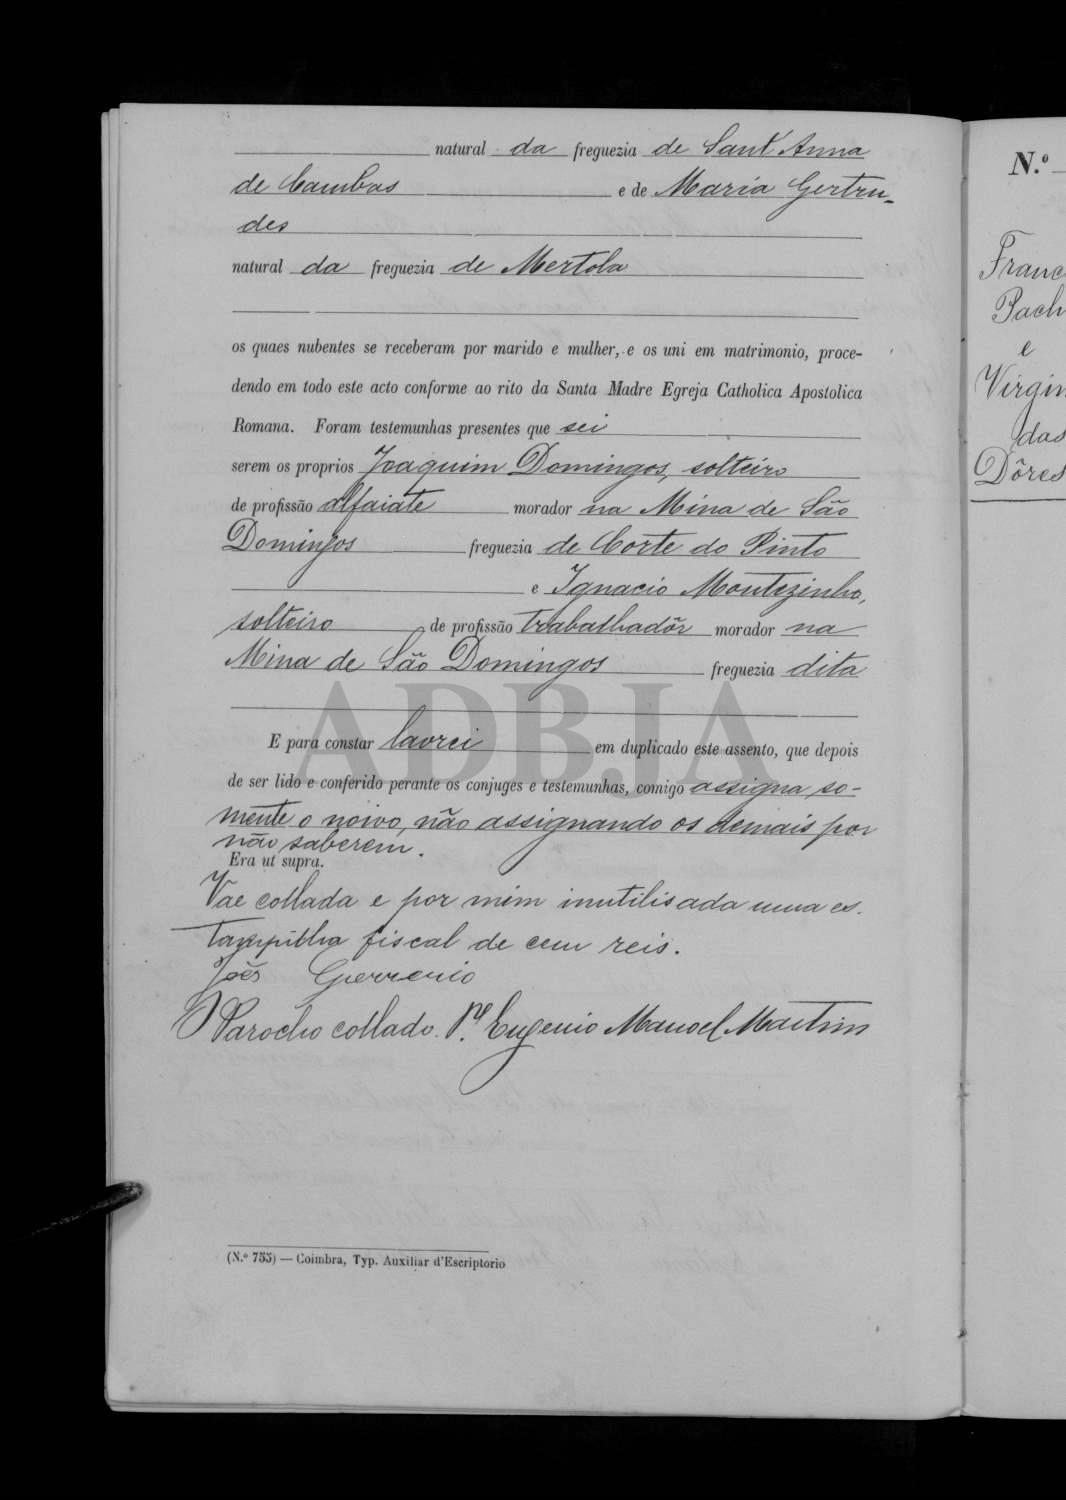 natural da freguezia de Sant'Anna
de Cambas e de Maria Gertru-
des
natural da freguezia de Mertola
os quaes nubentes se receberam por marido e mulher, e os uni em matrimonio, proce-
dendo em todo este acto conforme ao rito da Santa Madre Egreja Catholica Apostolica
Romana. Foram testemunhas presentes que sei
serem os proprios Joaquim Domingos, solteiro
de profissão alfaiate morador na Mina de São
Domingos freguezia de Corte do Pinto
e Ignacio Montezinho,
solteiro de profissão trabalhadôr morador na
Mina de São Domingos freguezia dita
ADBJA
E para constar lavrei em duplicado este assento, que depois
de ser lido e conferido perante os conjuges e testemunhas, comigo assigna so-
mente o noivo, não assignando os demais por
não saberem.
Era ut supra.
Vae collada e por mim inutilisada uma es-
tampilha fiscal de cem reis.
Guerreiro
O Parocho collado. P.e Eugenio Manoel Martins
(N.º 755) — Coimbra, Typ. Auxiliar d'Escriptorio
N.º
Franc
Pach
e
Virgin
das
Dôres